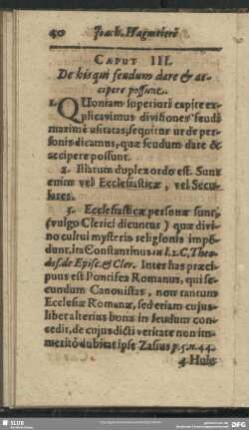 40 Joach. Hagmeierĩ
CAPUT III.
De his qui feudum dare & ac-
cipere possunt.
1. QUoniam superiori capite ex-
plicavimus divisiones feudi
maximè usitatas, sequitur ut de per-
sonis dicamus, quæ feudum dare &
accipere possunt.
2. Illarum duplex ordo est. Sunt
enim vel Ecclesiasticæ, vel Secu-
lares.
3. Ecclesiasticæ personæ sunt,
(vulgo Clerici dicuntur) quæ divi-
no cultui mysteriis religionis impẽ-
dunt. ita Constantinus in l. 2. C. Theo-
dos. de Episc. & Cler. Inter has præci-
puus est Pontifex Romanus, qui se-
cundum Canonistas, non tantum
Ecclesiæ Romanæ, sed etiam cujus-
libet alterius bona in feudum con-
cedit, de cujus dicti veritate non im-
meritò dubitat ipse Zasius p. 5. n. 44.
4 Huic
SLUB
DFG